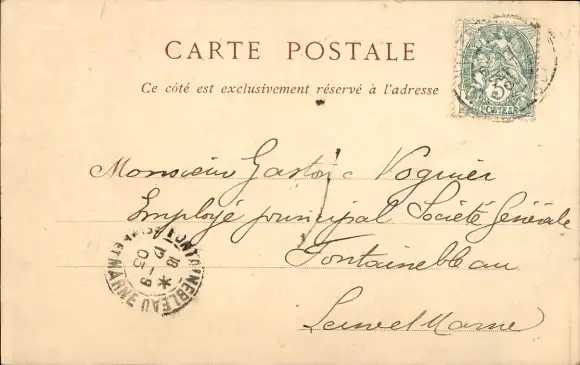 CARTE POSTALE
Ce côté est exclusivement réservé à l'adresse
5
POSTES
Monsieur Gaston Vognier
Employé principal Société Générale
Fontainebleau
Seine et Marne
FONTAINEBLEAU
ET MARNE